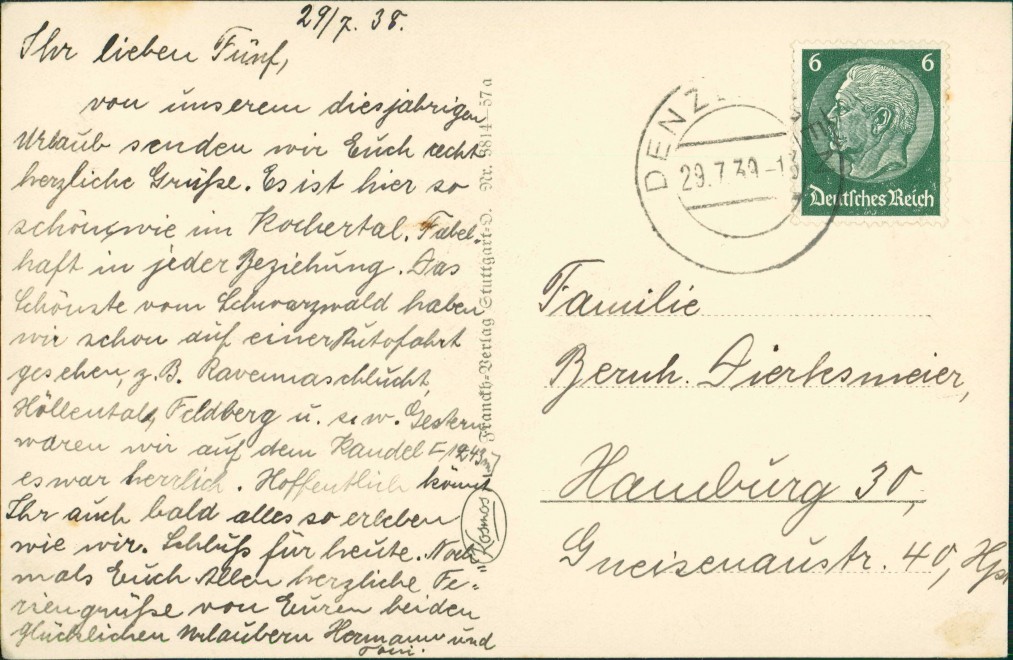 29/7. 38.
Ihr lieben Fünf,
von unserem diesjährigen
Urlaub senden wir Euch recht
herzliche Grüße. Es ist hier so
schön, wie im Kochertal. Fabel-
haft in jeder Beziehung. Das
Schönste vom Schwarzwald haben
wir schon auf einer Autofahrt
gesehen, z. B. Ravennaschlucht,
Höllental, Feldberg u. s. w. Gestern
waren wir auf dem Kandel [1243 m]
es war herrlich. Hoffentlich könnt
Ihr auch bald alles so erleben
wie wir. Schluß für heute. Noch-
mals Euch Allen herzliche Fe-
riengrüße von Euren beiden
glücklichen Urlaubern Hermann und
Toni.
Franckh-Verlag Stuttgart-O. Nr. 5814 - 57a
Kosmos
DENZ
29.7.39-13
6 6
Deutsches Reich
Familie
Bernh. Dierksmeier,
Hamburg 30,
Gneisenaustr. 40, Hp